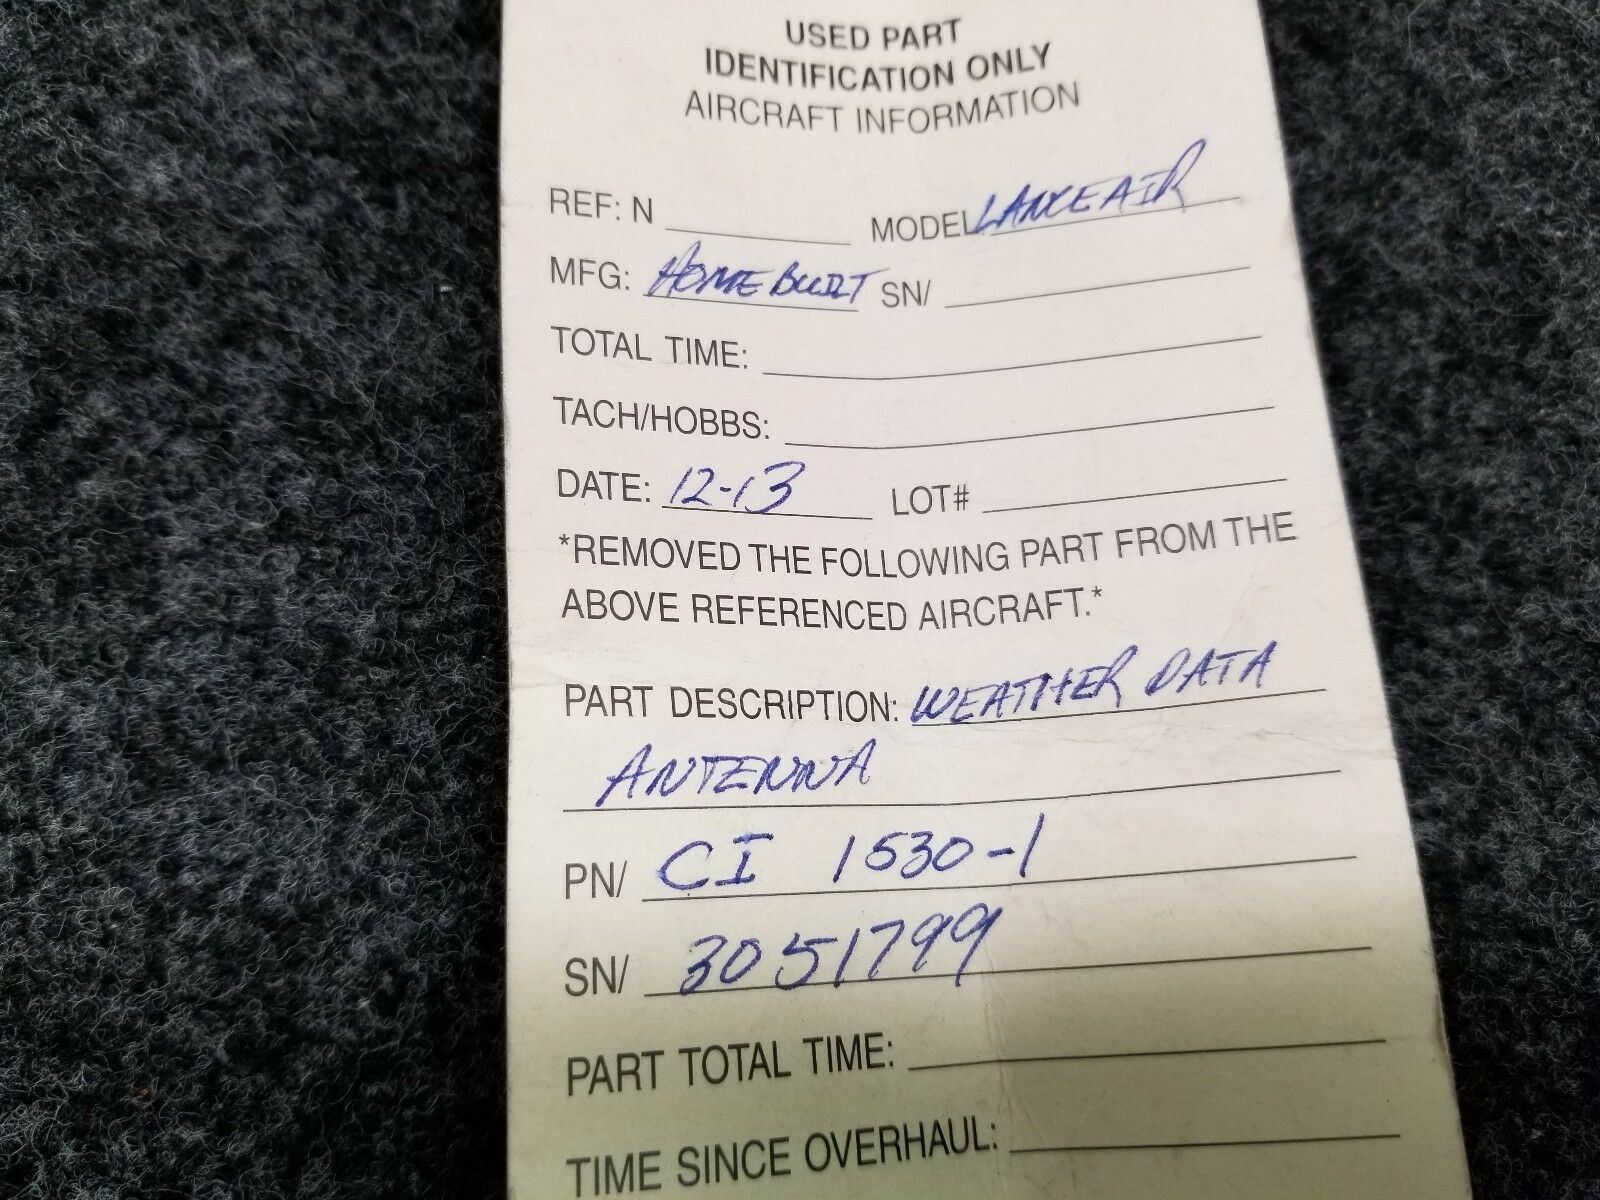 USED PART
IDENTIFICATION ONLY
AIRCRAFT INFORMATION
REF: N MODEL LANCEAIR
MFG: HOMEBUILT SN/
TOTAL TIME:
TACH/HOBBS:
DATE: 12-13 LOT#
*REMOVED THE FOLLOWING PART FROM THE
ABOVE REFERENCED AIRCRAFT.*
PART DESCRIPTION: WEATHER DATA
ANTENNA
PN/ CI 1530-1
SN/ 3051799
PART TOTAL TIME:
TIME SINCE OVERHAUL: